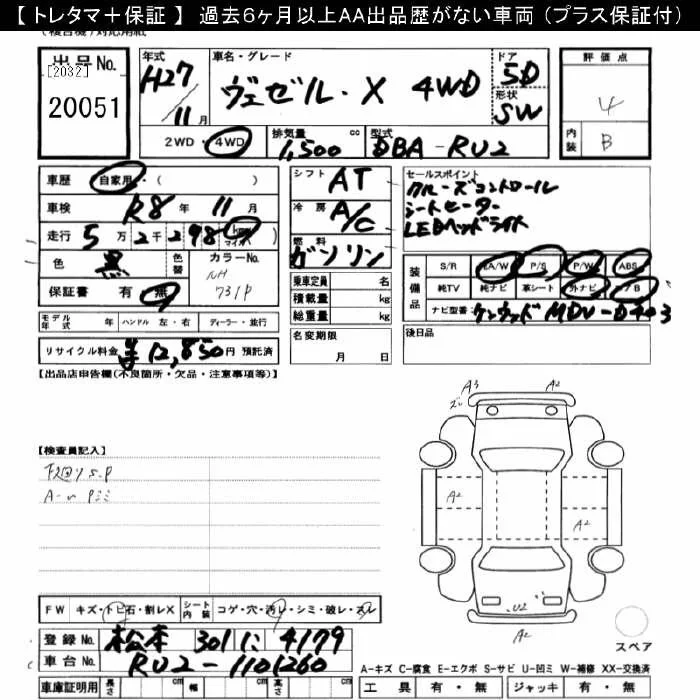 【 トレタマ＋保証 】 過去6ヶ月以上AA出品歴がない車両（プラス保証付）
出品No. [2032] 20051
年式 H27/11月
車名・グレード ヴェゼル・X 4WD
ドア 5D
形状 SW
評価点 4
内装 B
2WD・4WD
排気量 1,500 cc
型式 DBA-RU2
車歴 自家用・( )
車検 R8年 11月
走行 5万2千298 km マイル
色 黒 色替 カラーNo. NH731P
保証書 有・無
モデル年式 年 ハンドル 左・右 ディーラー・並行
リサイクル料金 ¥12,850円 預託済
シフト AT
冷房 A/C
燃料 ガソリン
乗車定員 名
積載量 kg
総重量 kg
名変期限
月 日
セールスポイント
クルーズコントロール
シートヒーター
LEDヘッドライト
装備品
S/R AA/W P/S P/W ABS
純TV 純ナビ 革シート 外ナビ
ナビ型番: ケンウッド MDV-D403
後日品
【出品店申告欄(不良箇所・欠品・注意事項等)】
【検査員記入】
FW キズ・トビ石・割レX シート内装 コゲ・穴・汚レ・シミ・破レ・スレ
登録No. 松本 301 に 4179
車台No. RU2-1101260
車庫証明用 長さ cm 幅 cm 高さ cm
A3
A2
A2
A2
U2
A2
スペア
A-キズ C-腐食 E-エクボ S-サビ U-凹ミ W-補修 XX-交換済
工具 有・無 ジャッキ 有・無